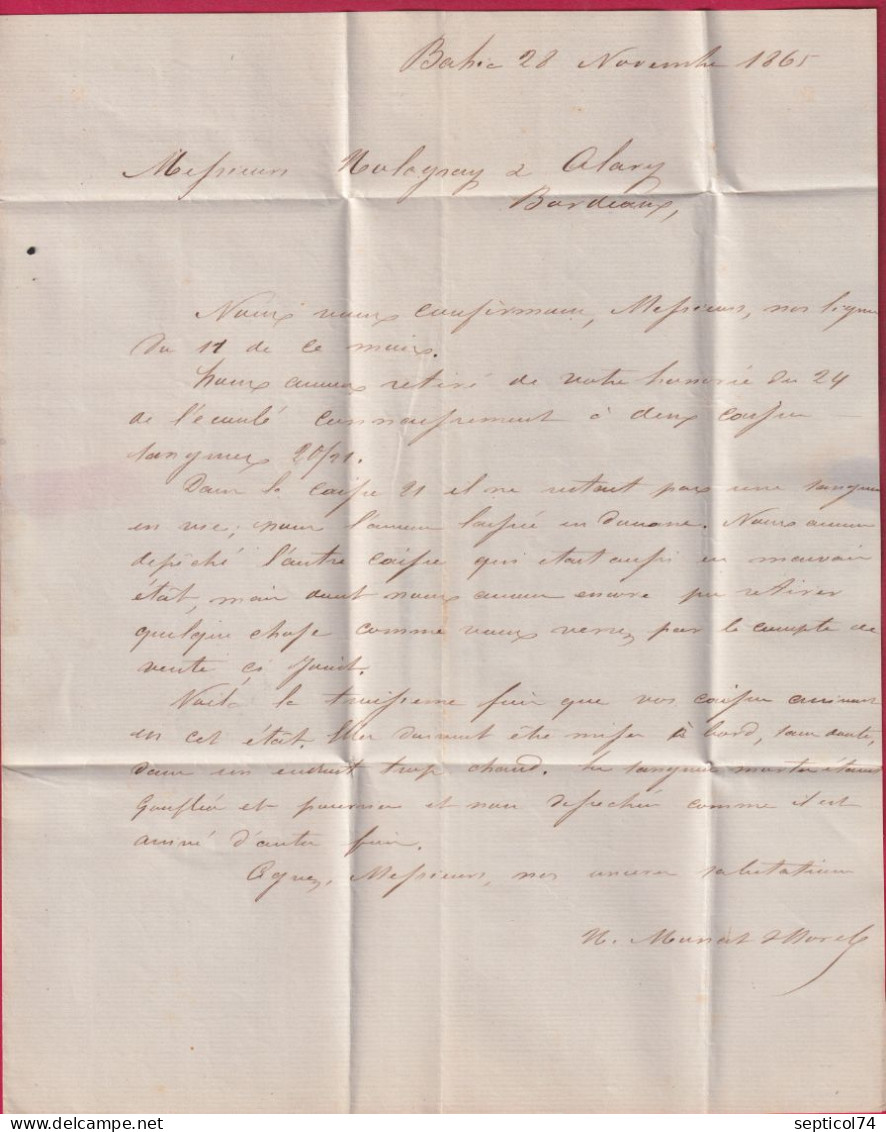 Bahia 28 Novembre 1865
Messieurs & Alary
Bordeaux,
Nous vous confirmons, Messieurs, nos lignes
du 11 de ce mois.
Nous avons retiré de votre honorée du 24
de l'écoulé connaissement à deux caisses
sangsues 20/21.
Dans la caisse 21 il ne restait pas une sangsue
en vie; nous l'avons laissée en douane. Nous avons
dépêché l'autre caisse qui était aussi en mauvais
état, mais dont nous avons encore pu retirer
quelque chose comme vous verrez par le compte de
vente ci joint.
Voilà la troisième fois que vos caisses arrivent
en cet état. Elles doivent être mises à bord, sans doute,
dans un endroit trop chaud. Les sangsues mortes étaient
gonflées et pourries et non desséchées comme il est
arrivé d'autres fois.
Agréez, Messieurs, nos sincères salutations